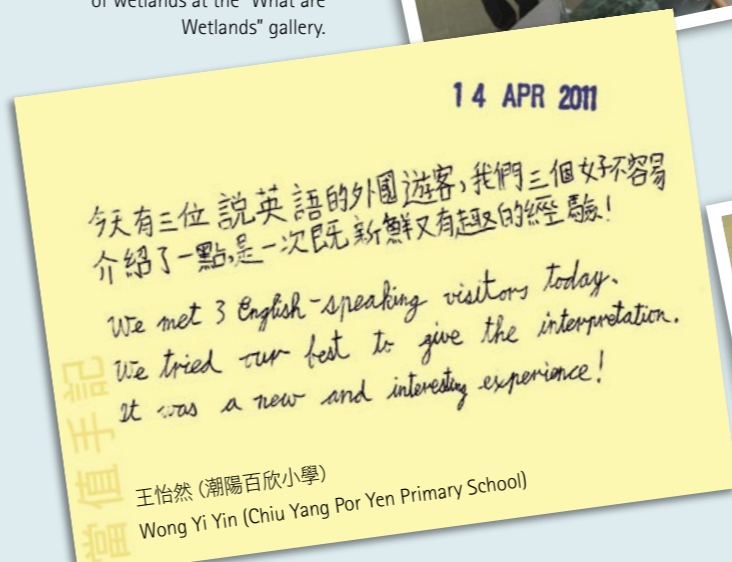 of wetlands at the "What are
Wetlands" gallery.
14 APR 2011
今天有三位說英語的外國遊客，我們三個好不容易
介紹了一點，是一次既新鮮又有趣的經驗！
We met 3 English-speaking visitors today.
We tried our best to give the interpretation.
It was a new and interesting experience!
當值手記
王怡然（潮陽百欣小學）
Wong Yi Yin (Chiu Yang Por Yen Primary School)